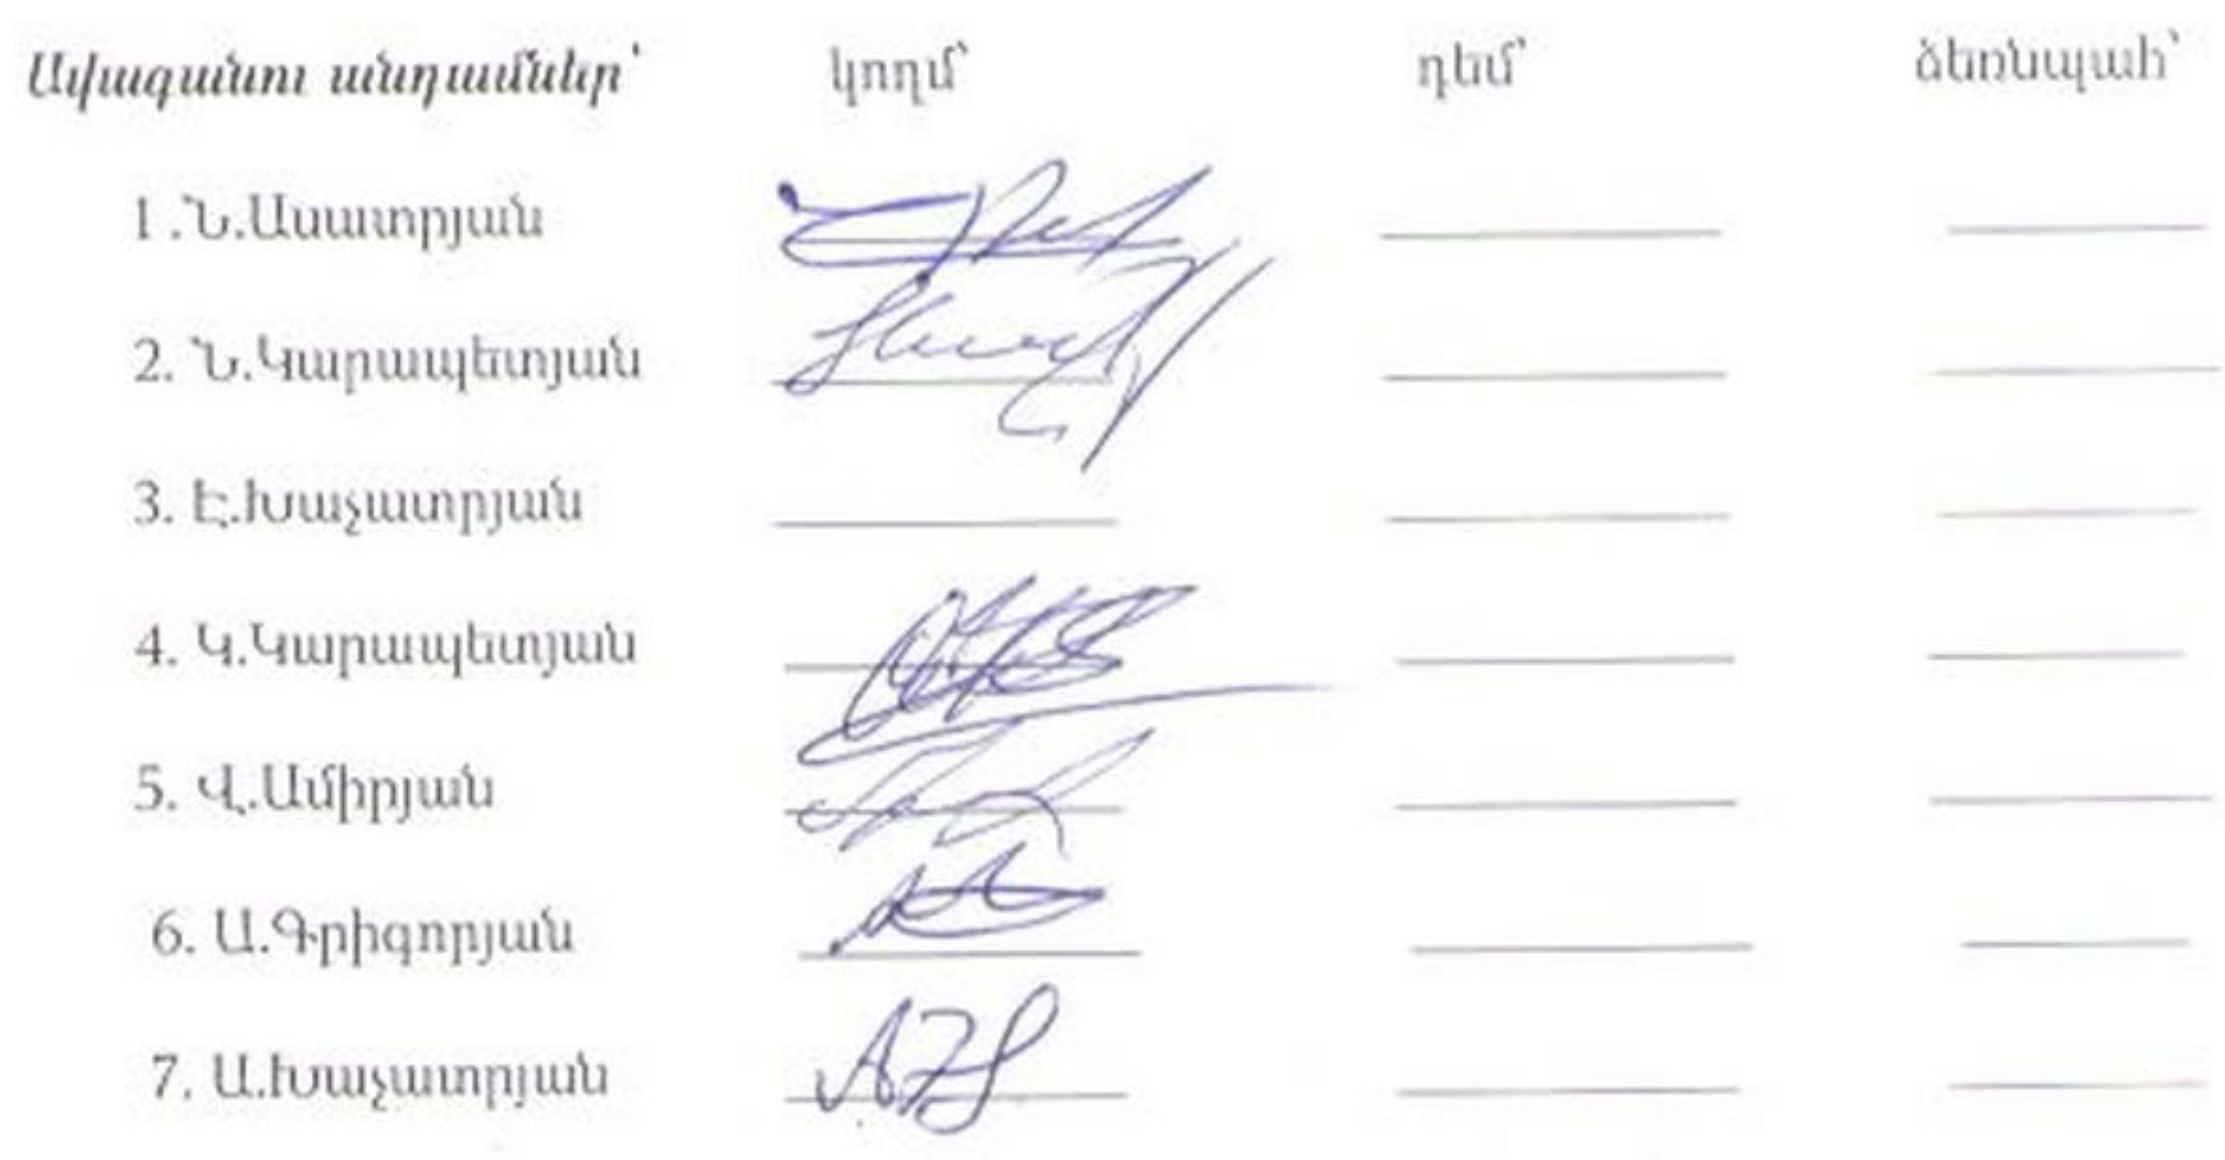 Ավագանու անդամներ՝ կողմ՝ դեմ՝ ձեռնպահ՝
1.Ն.Ասատրյան
2. Ն.Կարապետյան
3. Է.Խաչատրյան
4. Կ.Կարապետյան
5. Վ.Ամիրյան
6. Ա.Գրիգորյան
7. Ա.Խաչատրյան